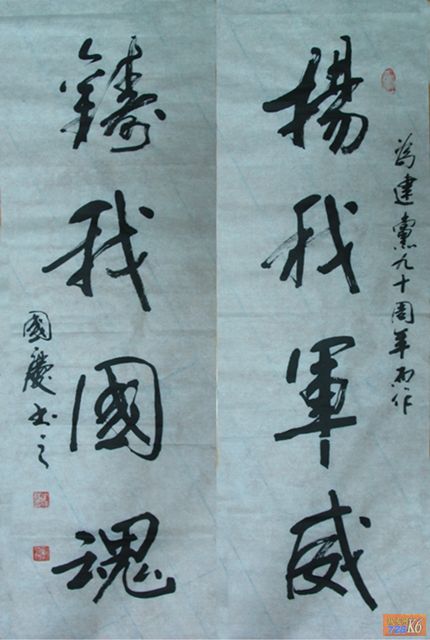 為建黨九十周年而作
揚我軍威
鑄我國魂
國慶書之
728 K6